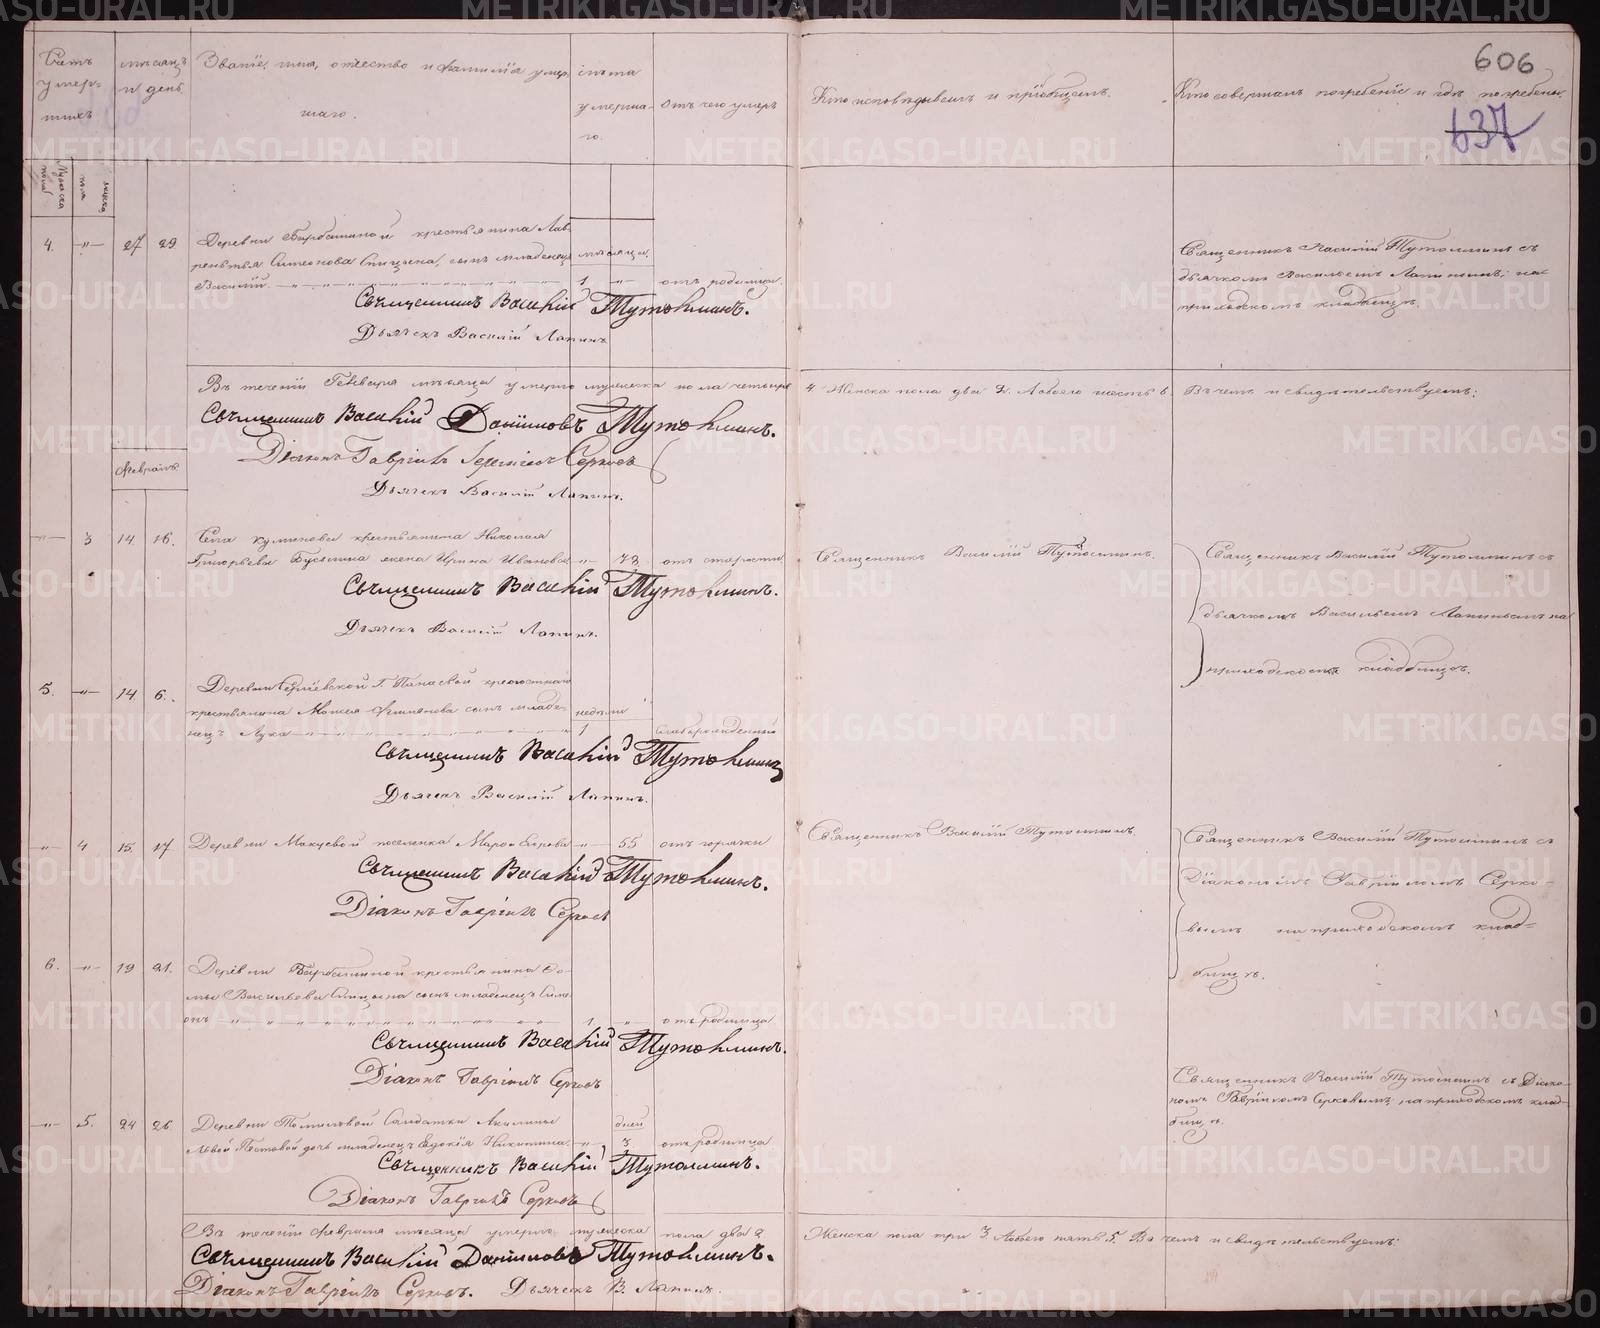 606
637
Счетъ умер- шихъ
мѣсяцъ и день
Званіе, имя, отчество и фамилія умер-
шаго.
лѣта умерша- го.
отъ чего умеръ
Кто исповѣдывалъ и пріобщалъ.
Кто совершалъ погребеніе и гдѣ погребены.
Мужеска пола
женска пола
4. -"- 27 29
Деревни Барбашиной крестьянина Лав-
рентья Симеонова Спицына, сынъ младенецъ
Василій. мѣсяца 1 отъ родимца.
Священникъ Василій Тутолминъ.
Дьячекъ Василій Лапинъ
Священникъ Василій Тутолминъ съ
дьячкомъ Васильемъ Лапинымъ; на
приходскомъ кладбищѣ.
Въ теченіи Генваря мѣсяца умерло мужеска пола четыре
4. Женска пола два 2. Обоего шесть 6. Въ чемъ и свидѣтельствуемъ:
Священникъ Василій Даніиловъ Тутолминъ.
Діаконъ Гавріилъ Серковъ
Дьячекъ Василій Лапинъ.
Февраль.
-"- 3 14. 16.
Села крестьянина Николая
Григорьева жена Ирина Иванова -"- 73 отъ старости
Священникъ Василій Тутолминъ.
Дьячекъ Василій Лапинъ.
Священникъ Василій Тутолминъ.
Священникъ Василій Тутолминъ съ
дьячкомъ Васильемъ Лапинымъ на
приходскомъ кладбищѣ.
5. -"- 14 6.
Деревни
крестьянина Моисея сынъ младе-
нецъ Лука недѣли 1
Священникъ Василій Тутолминъ
Дьячекъ Василій Лапинъ.
-"- 4 15. 17
Деревни поселенка -"- 55 отъ горячки
Священникъ Василій Тутолминъ.
Діаконъ Гавріилъ Серковъ
Священникъ Василій Тутолминъ.
Священникъ Василій Тутолминъ съ
Діакономъ Гавріиломъ Серко-
вымъ на приходскомъ клад-
бищѣ.
6. -"- 19 21.
Деревни Барбашиной крестьянина Фо-
мы Васильева Спицына сынъ младенецъ Симе-
онъ 1 " отъ родимца
Священникъ Василій Тутолминъ.
Діаконъ Гавріилъ Серковъ
Священникъ Василій Тутолминъ съ Діако-
номъ Гавріиломъ Серковымъ; на приходскомъ клад-
бищѣ.
-"- 5. 24 26
Деревни Томиловой Солдатки Акилины
дочь младенецъ Евдокія Никитина -"- дней 3 отъ родимца
Священникъ Василій Тутолминъ.
Діаконъ Гавріилъ Серковъ
Въ теченіи Февраля мѣсяца умерло мужеска пола два 2.
Женска пола три 3 Обоего пять 5. Въ чемъ и свидѣтельствуемъ:
Священникъ Василій Даніиловъ Тутолминъ.
Діаконъ Гавріилъ Серковъ. Дьячекъ В. Лапинъ.
METRIKI.GASO-URAL.RU